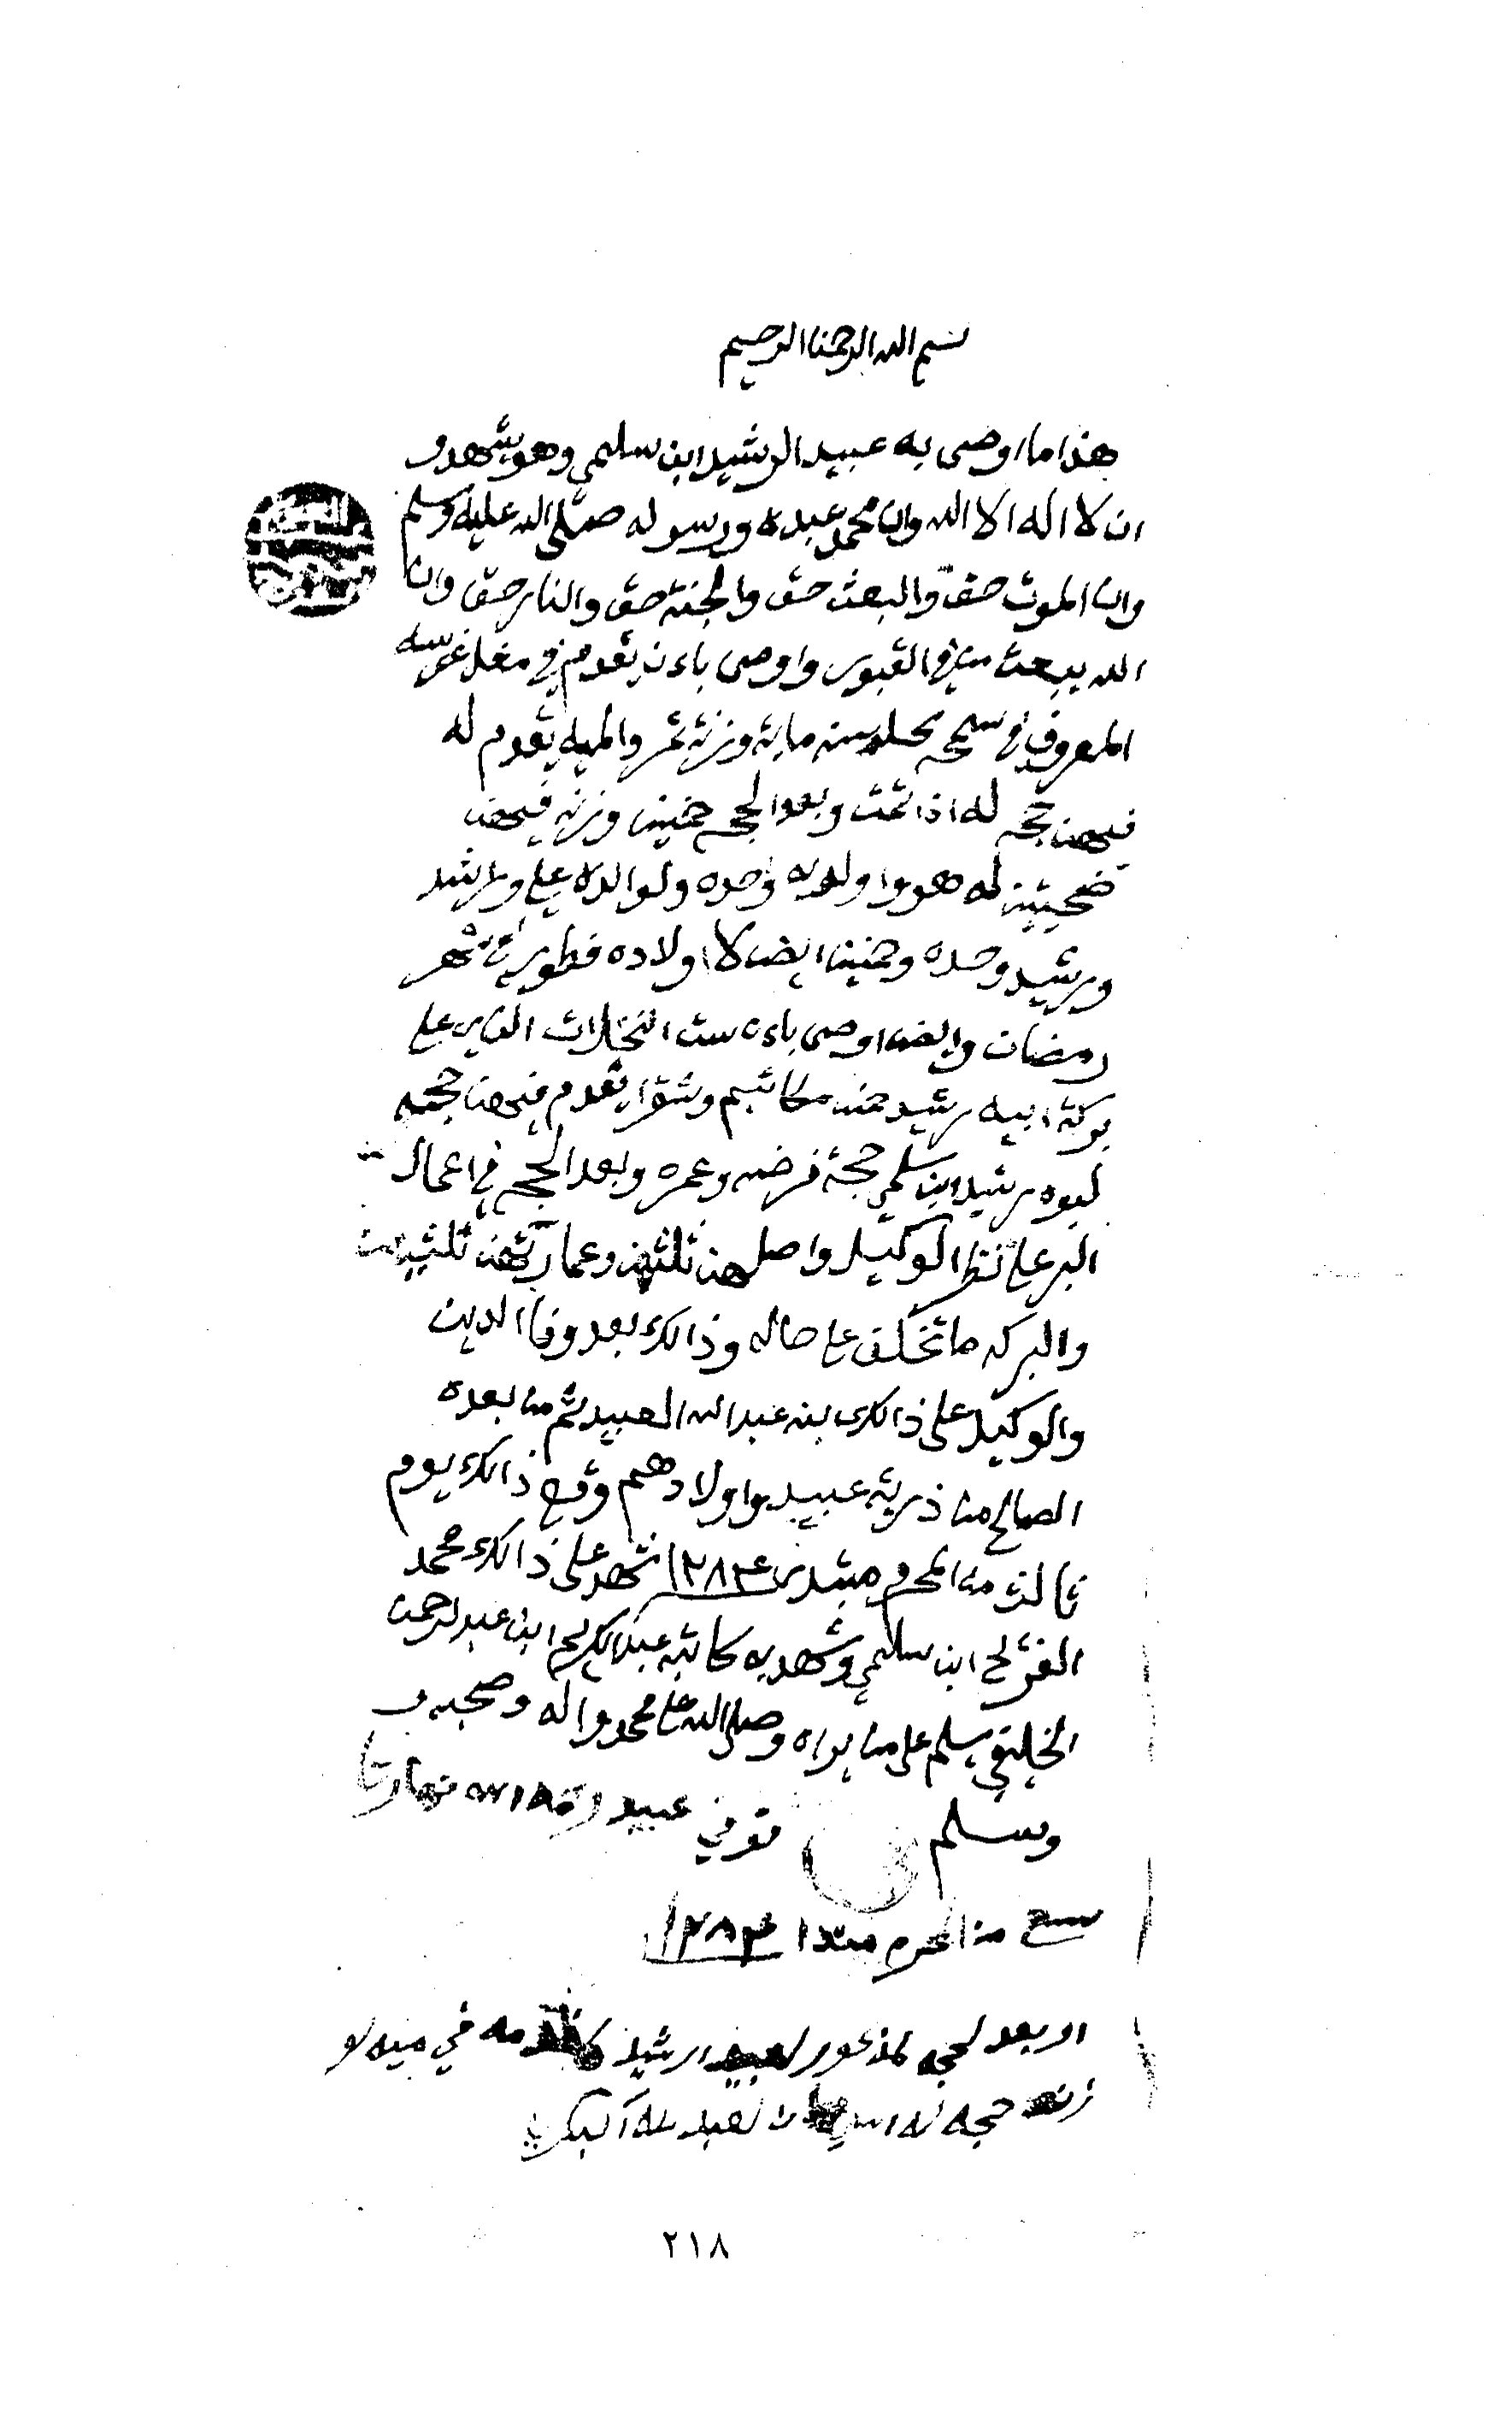 بسم الله الرحمن الرحيم
هذا ما اوصى به عبيد الرشيد ابن سليمي وهو يشهد
ان لا اله الا الله وان محمد عبده ورسوله صلى الله عليه وسلم
وان الموت حق والبعث حق والجنة حق والنار حق وان
الله يبعث من في القبور واوصى باءن يقدم في مغل غرسه
المعروف في سمحه كل سنه ماية وزنة تمر والميه يقدم له
فيهن حجه له اذا تمت وبعد الحجه خمسين وزنه فيهن
ضحيتين له هو واولاده وحده ولوالده علي وراشد
ورشيد وحده وخمسين ايضا لاولاده فطور في شهر
رمضان وايضا اوصى باءن ست النخلات على
بركة ابيه رشيد مكاتيم وشقرا يقدم فيهن حجه
لبوه رشيد ابن سليمي حجة فرضه وعمره وبعد الحجه في اعمال
البر على نظر الوكيل واصلهن ثلثهن وعمارتهن ثلثيهن
والبركه ما تخلف على حاله وذالك بعد وفا الدين
والوكيل على ذالك ابنه عبدالله العبيد ثم من بعده
الصالح من ذرية عبيد واولادهم وقع ذالك يوم
ثالث من المحرم مبتدى ١٢٨٣ شهد على ذالك محمد
ابن سليمي وشهد به كاتبه عبدالكريم ابن عبدالرحمن
الخليفي يسلم على من يراه وصلى الله على محمد واله وصحبه
وسلم توفي عبيد نهار
من المحرم مبتدا ١٢٨٣
بعد لحجه لمذكور لعبيد الرشيد في ميه
حجه له
٢١٨